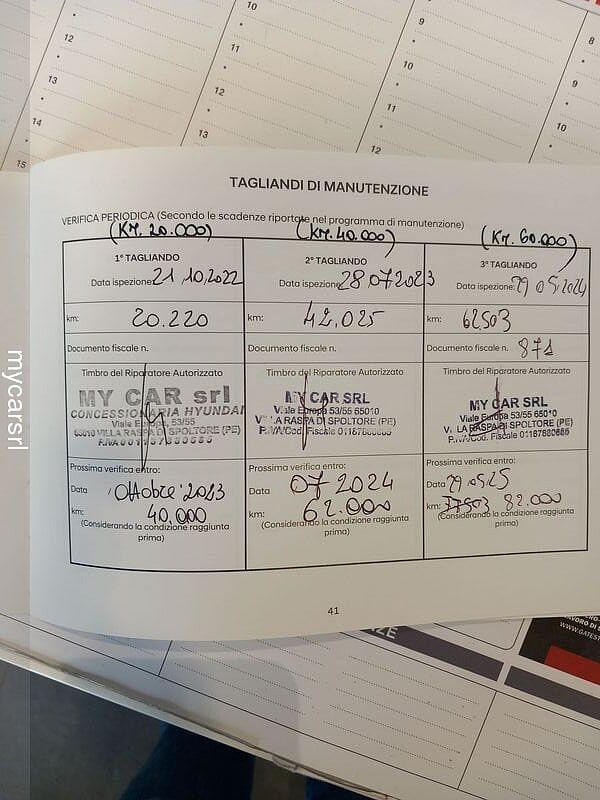 10
11
12
13
12
13
14
15
9
10
11
12
8
9
10
TAGLIANDI DI MANUTENZIONE
VERIFICA PERIODICA (Secondo le scadenze riportate nel programma di manutenzione)
(KM. 20.000)
(KM. 40.000)
(KM. 60.000)
1° TAGLIANDO
Data ispezione: 21.10.2022
km: 20.220
Documento fiscale n.
Timbro del Riparatore Autorizzato
MY CAR srl
CONCESSIONARIA HYUNDAI
Viale Europa, 53/55
65010 VILLA RASPA DI SPOLTORE (PE)
P.IVA 01167680686
Prossima verifica entro:
Data Ottobre 2023
km: 40.000
(Considerando la condizione raggiunta
prima)
2° TAGLIANDO
Data ispezione: 28.07.2023
km: 42.025
Documento fiscale n.
Timbro del Riparatore Autorizzato
MY CAR SRL
Viale Europa 53/55 65010
V. LA RASPA DI SPOLTORE (PE)
P.IVA/Cod. Fiscale 01167680686
Prossima verifica entro:
Data 07 2024
km: 62.000
(Considerando la condizione raggiunta
prima)
3° TAGLIANDO
Data ispezione: 29 05 2024
km: 62503
Documento fiscale n. 871
Timbro del Riparatore Autorizzato
MY CAR SRL
Viale Europa 53/55 65010
V. LA RASPA DI SPOLTORE (PE)
P.IVA/Cod. Fiscale 01167680686
Prossima verifica entro:
Data 29 05 25
km: 82.000
(Considerando la condizione raggiunta
prima)
41
mycarsrl